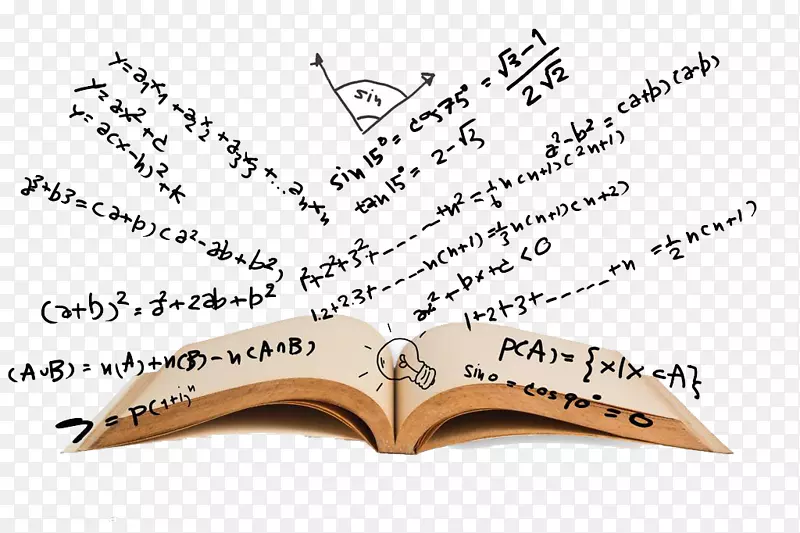 y = a₁x₁ + a₂x₂ + a₃x₃ + ... aₙxₙ
y = ax² + c
y = a(x-h)² + k
sin
sin15° = cos75° = √3-1 / 2√2
tan15° = 2-√3
a²-b² = (a+b)(a-b)
a³+b3 = (a+b)(a²-ab+b²)
1²+2²+3²+-----+n² = 1/6 n(n+1)(2n+1)
1.2+2.3+....n(n+1) = 1/3 n(n+1)(n+2)
(a+b)² = a²+2ab+b²
ax²+bx+c<0
1+2+3+-----+n = 1/2 n(n+1)
(A∪B) = n(A)+n(B)-n(A∩B)
P(A) = {x|x⊂A}
sin0 = cos90° = 0
= P(1+i)ⁿ